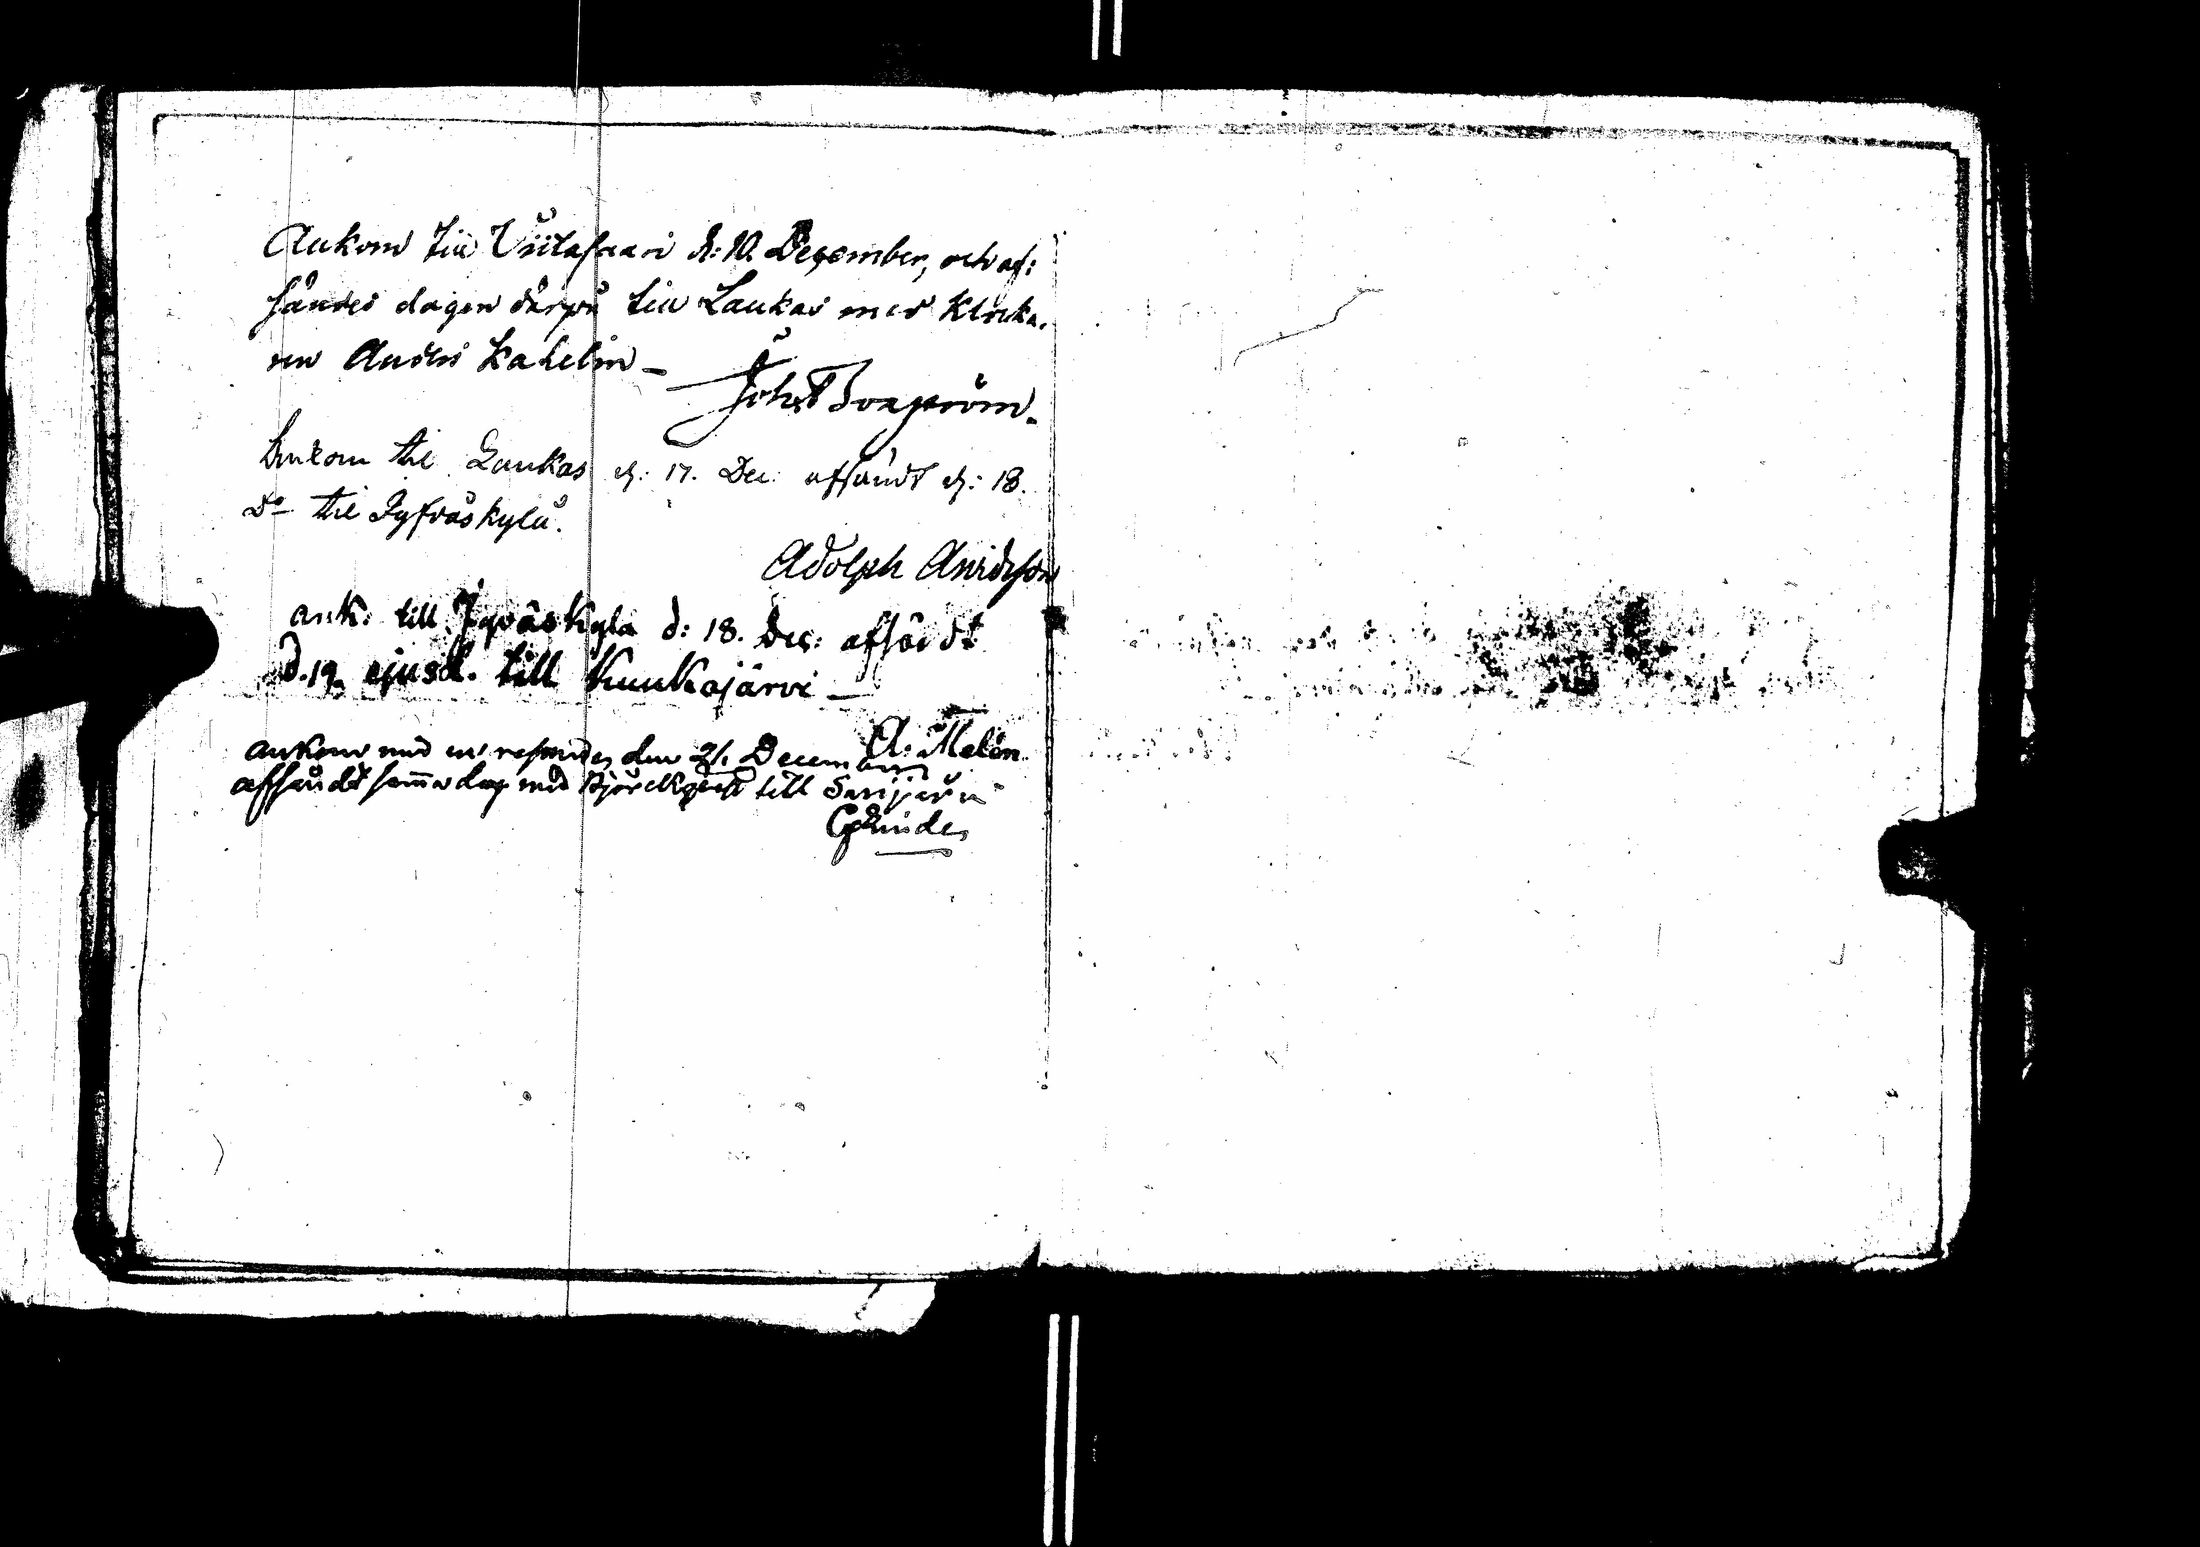 Ankom till Viitasaari d: 10. December, och af:
sändes dagen därpå till Laukas med Klocka.
ren Anders Kahelin –
Joh.
Ankom til Laukas d: 17. Dec: afsändt d: 18.
Do til Jyfväskylä.
Adolph
ank: till Jyväskyla d: 18. Dec: afsändt
d. 19. ejusd. till Kuukajärvi –
A: Melen
ankom med en resande den 21. December
afsändt samma dag med Björckqvist till Sarijärvi